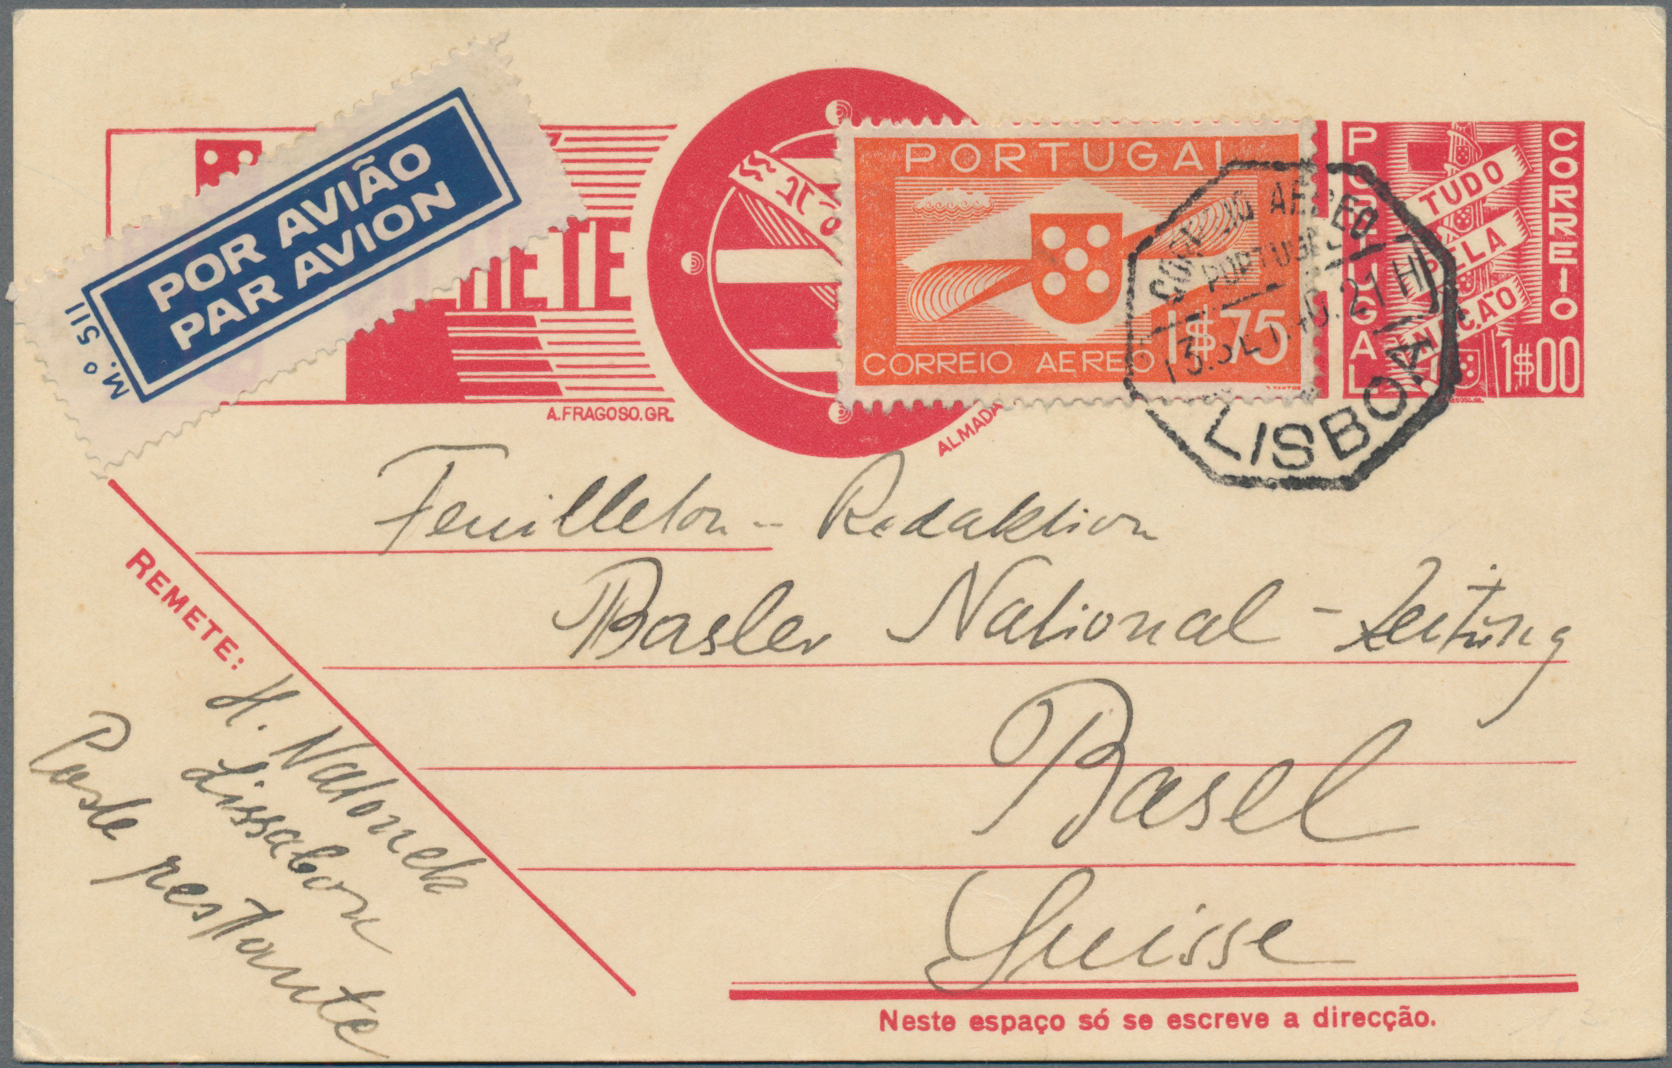 POR AVIÃO
PAR AVION
M.º 511
A. FRAGOSO. GR.
ALMADA
PORTUGAL
CORREIO AEREO 1$75
PORTUGAL
CORREIO
TUDO
PELA
NAÇÃO
1$00
CORREIO AEREO
PORTUGUES
13.SET.40.21H
LISBOA
Feuilleton - Redaktion
Basler National - Zeitung
Basel
Suisse
REMETE:
H. Natonek
Lissabon
Poste restante
Neste espaço só se escreve a direcção.